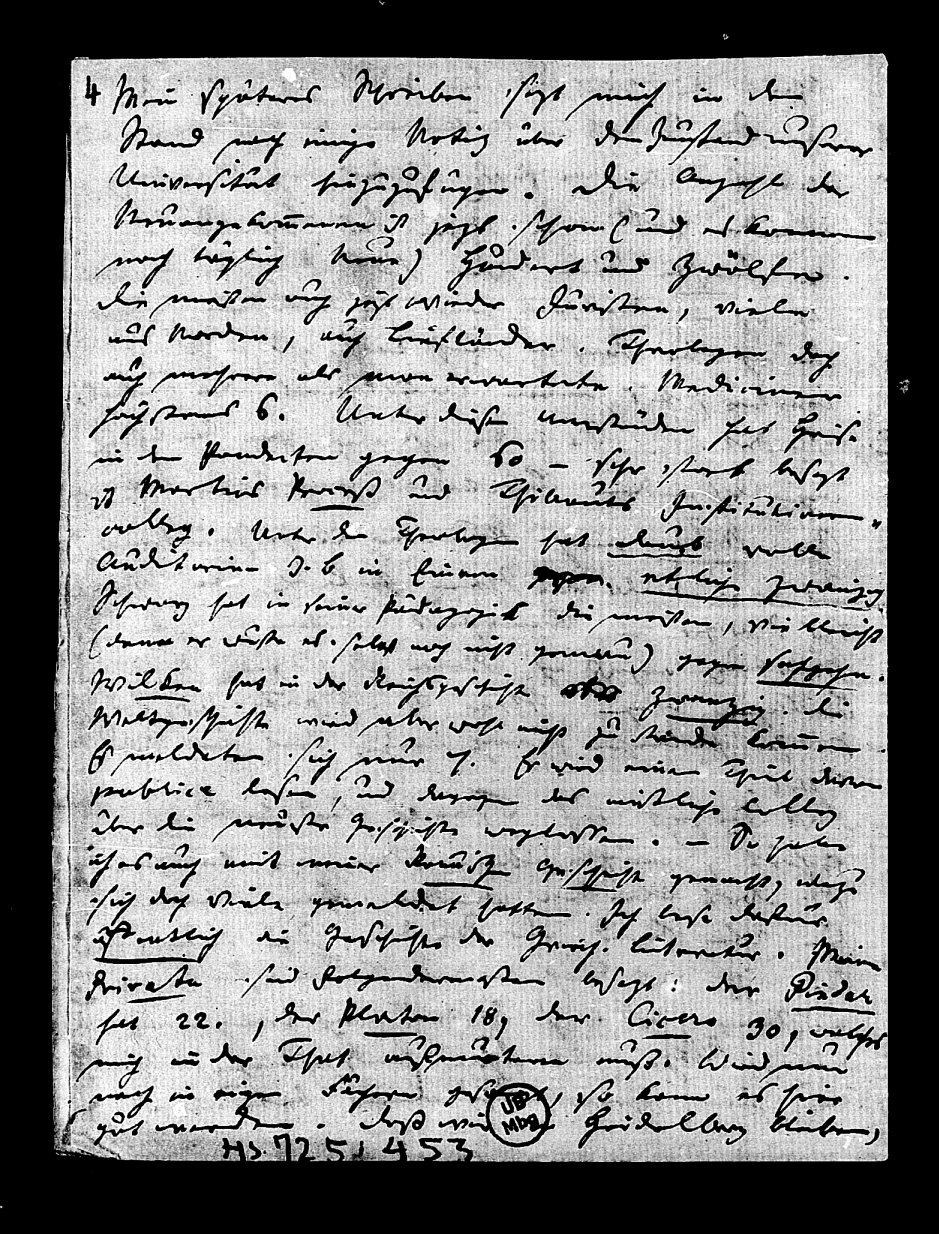 4 Mein späteres Schreiben sezt mich in den
Stand noch einige Notiz über den Zustand unsrer
Universität hinzuzufügen. Die Anzahl der
Neuangekom̅enen ist jezt schon (und es kom̅en
noch täglich Neue) Hundert und Zwölfe.
Die meisten auch jezt wieder Juristen, viele
aus Norden, auch Liefländer. Theologen doch
auch mehrere als man erwartete. Mediciner
höchstens 6. Unter diesen Umständen hat Heis.
in den Pandecten gegen 60 – sehr stark besezt
ist Martins Proceß und Thibauts Institutionen-
colleg. Unter den Theologen hat Daub volle
Auditorien z. b in Einem etliche zwanzig
Schwarz hat in seiner Pädagogik die meisten, vielleicht
(denn er wuste es selbst noch nicht genau) gegen sechzehn.
Wilken hat in der Reichsgeschichte zwanzig. Die
Weltgeschichte wird aber wohl nicht zu stande kom̅en
Es meldeten sich nur 4. Er wird einen Theil davon
publice lesen, und dagegen das mißliche Colleg
über die neuste Geschichte weglassen. – So habe
ich es auch mit meiner Römischen Geschichte gemacht, wozu
sich doch Viele gemeldet hatten. Ich lese dafür
öffentlich die Geschichte der Griech. Literatur. Meine
Privata sind folgendermasen besezt: der Pindar
hat 22., der Platon 18, der Cicero 30, welches
mich in der That aufmuntern muß. Wird nun
noch in einigen Fächern, so kann es hier
gut werden. Daß wir Heidelberg bleiben,
UB
Mbg
Hs. 725, 453